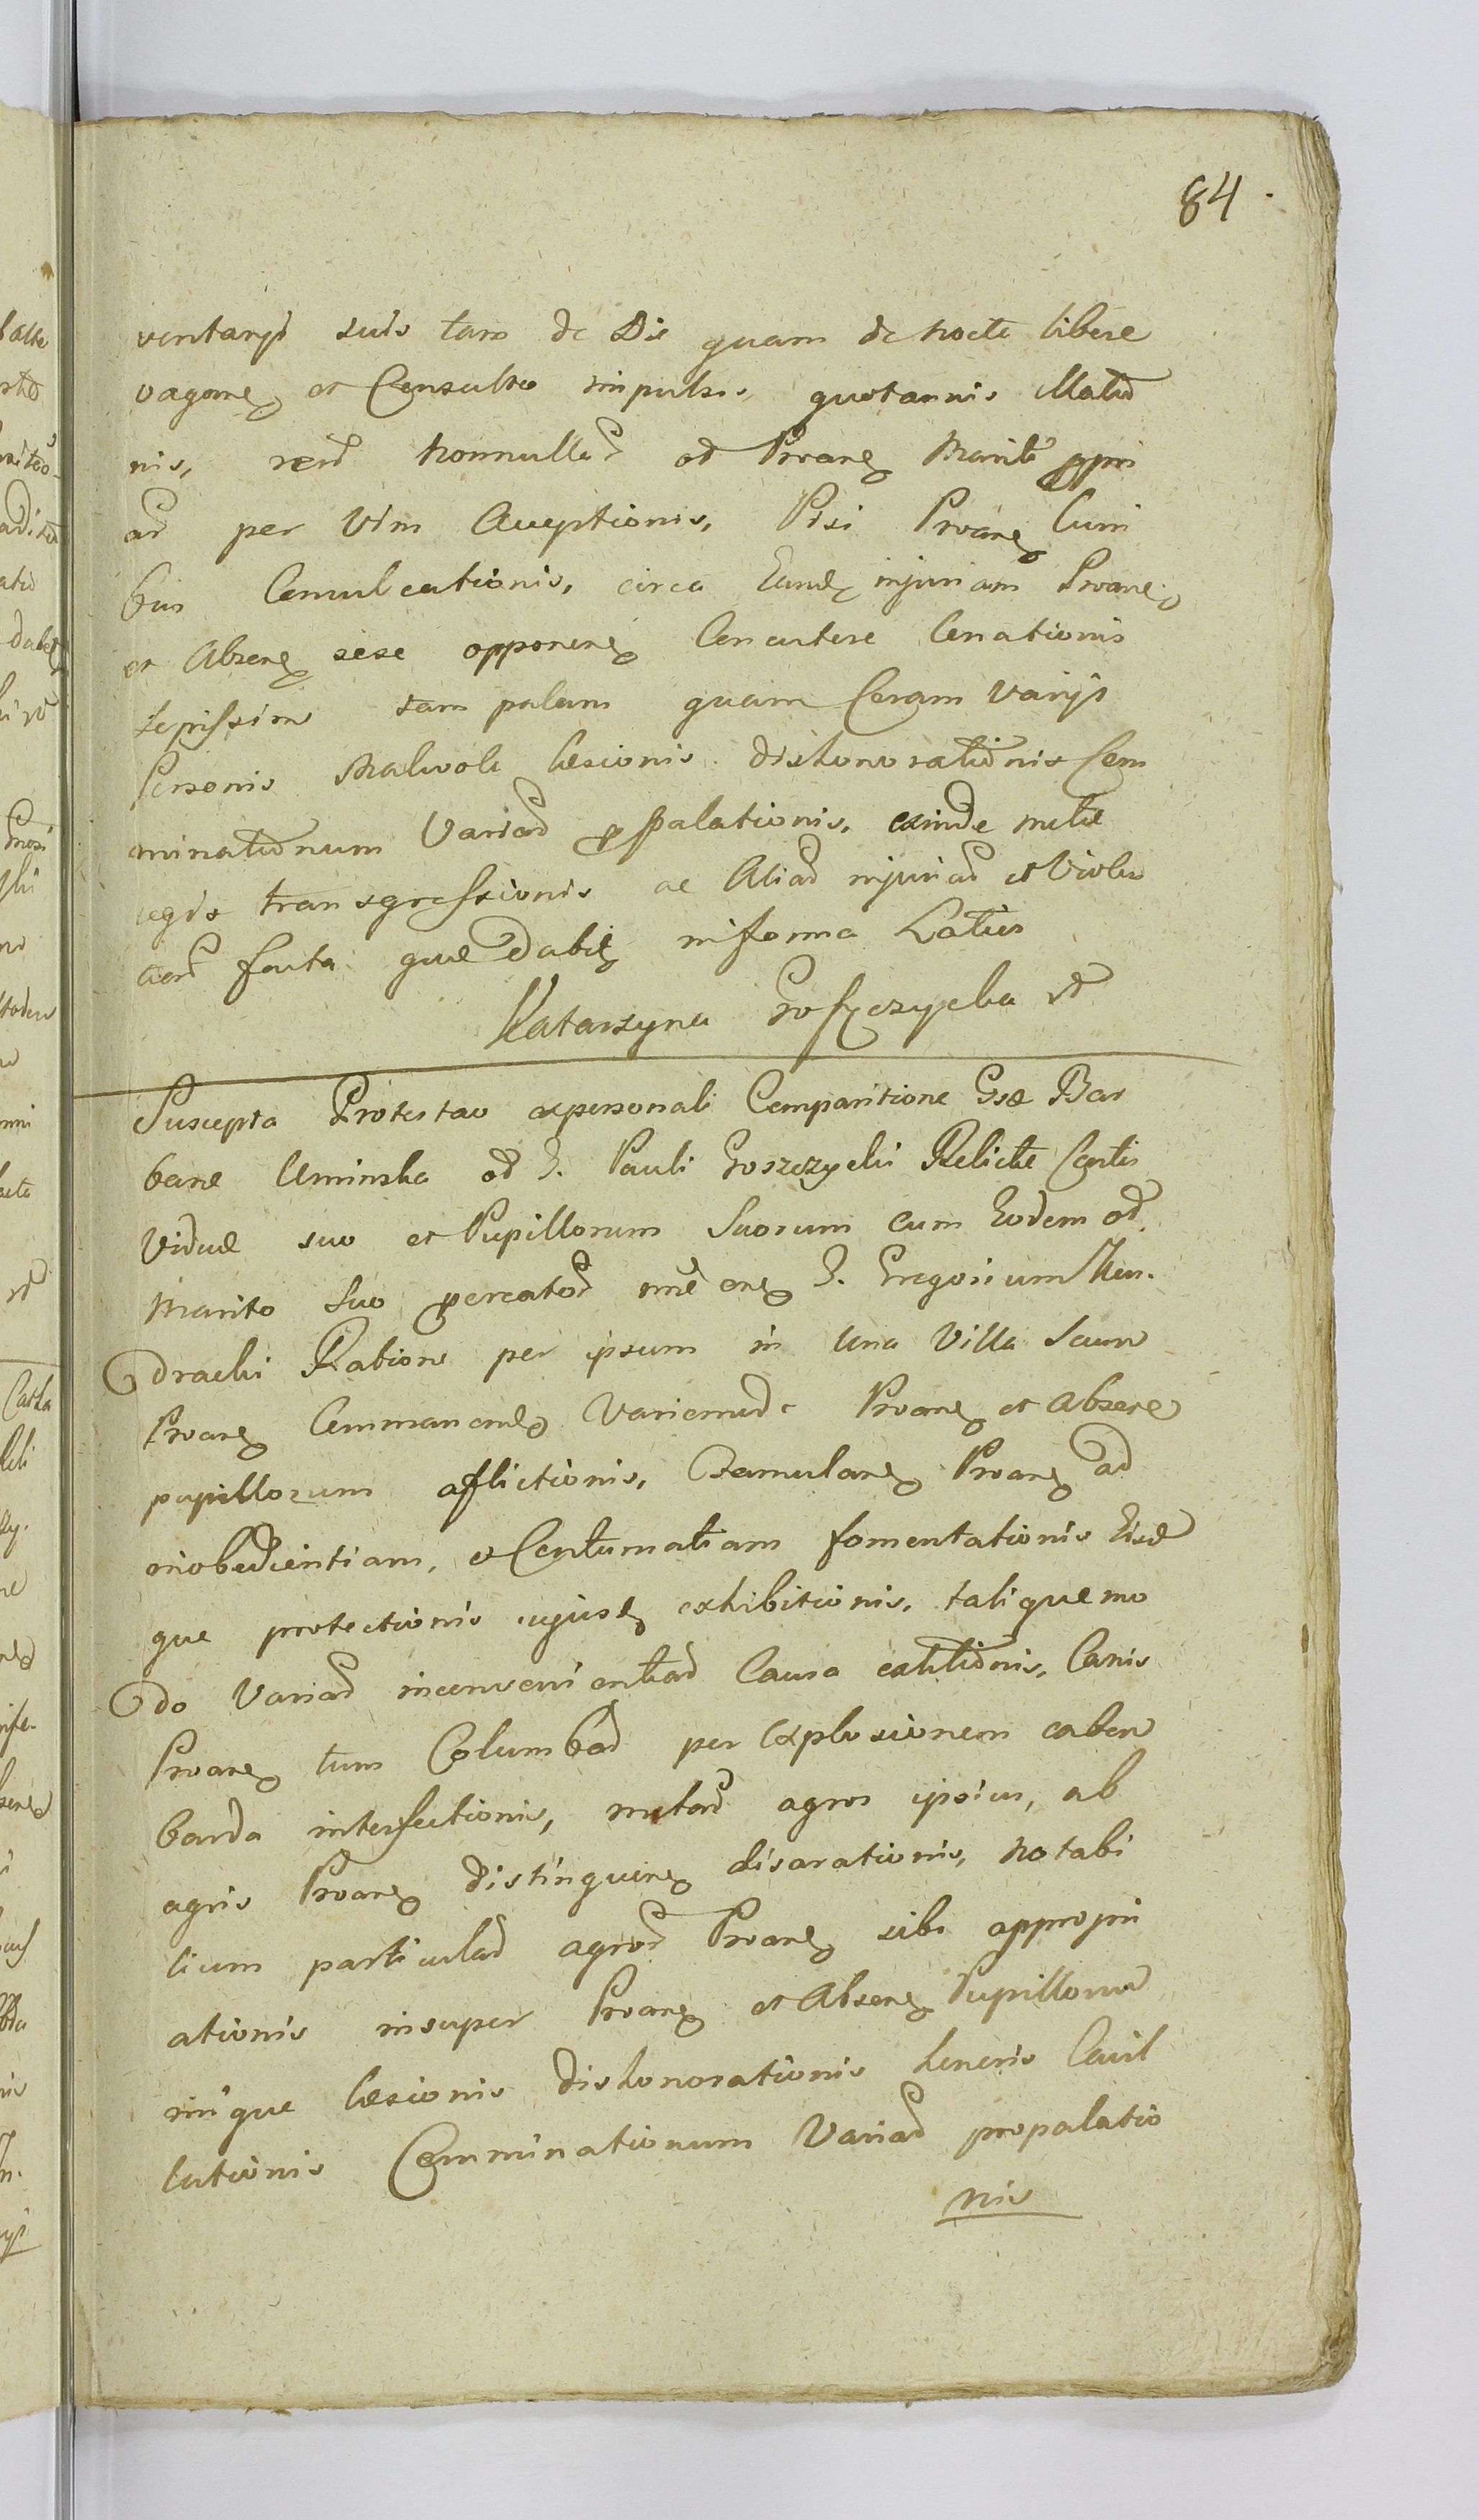 84
ventarys suis tam de Die quam de nocte libere
vagane et Consulto impulsio, quotannis illatio
nis, rerū nonnullarū ad Proane Marite ppri
arū per Vim Aceptionis, Pisi Proane Cum
bus Conculcationis, circa Eand injuriam Proane
et Absene sese opponene Concutere Conationis
sepissime tam palam quam Coram Varijs
Personis Malevole Lesionis dishonorationis Com
minationum Variarū propalationis, exinde mete
legis transgressionis ac Aliarū injuriarū et Viola
tionū facta que Dabit in forma Latius
Katarzyna Goszczycka rđ
Suscepta Protestao expersonali Comparitione Gsæ Bar
bare Uminska od G. Pauli Goszczycki Relicte Contis
Viduæ suo et Pupillorum Suorum cum Eodem od
Marito Suo procreatorū nne one G. Gregorium Ken.
dracki Ratione per ipsum in Una Villa Saum
Proane Commanend Variemode Proane et Absene
pupillorum aflictionis, Famulare Proane ad
inobedientiam, et Contumatiam fomentationis Eisd
que protectionis cujusd exhibitionis, talique mo
do Variarū inconvenientiarū Causa extitionis, Canis
Proane tum Columbarū per Explosionem ex bom
barda interfectionis, metarū agros ipsius, ab
agris Proane distinguene disarationis, notabi
lium particularū agrorū Proane sibi appropri
ationis insuper Proane et Absene Pupillorum
nnque lesionis dishonorationis honoris Cavil
lationis Comminationum Variarū propalatio
nis